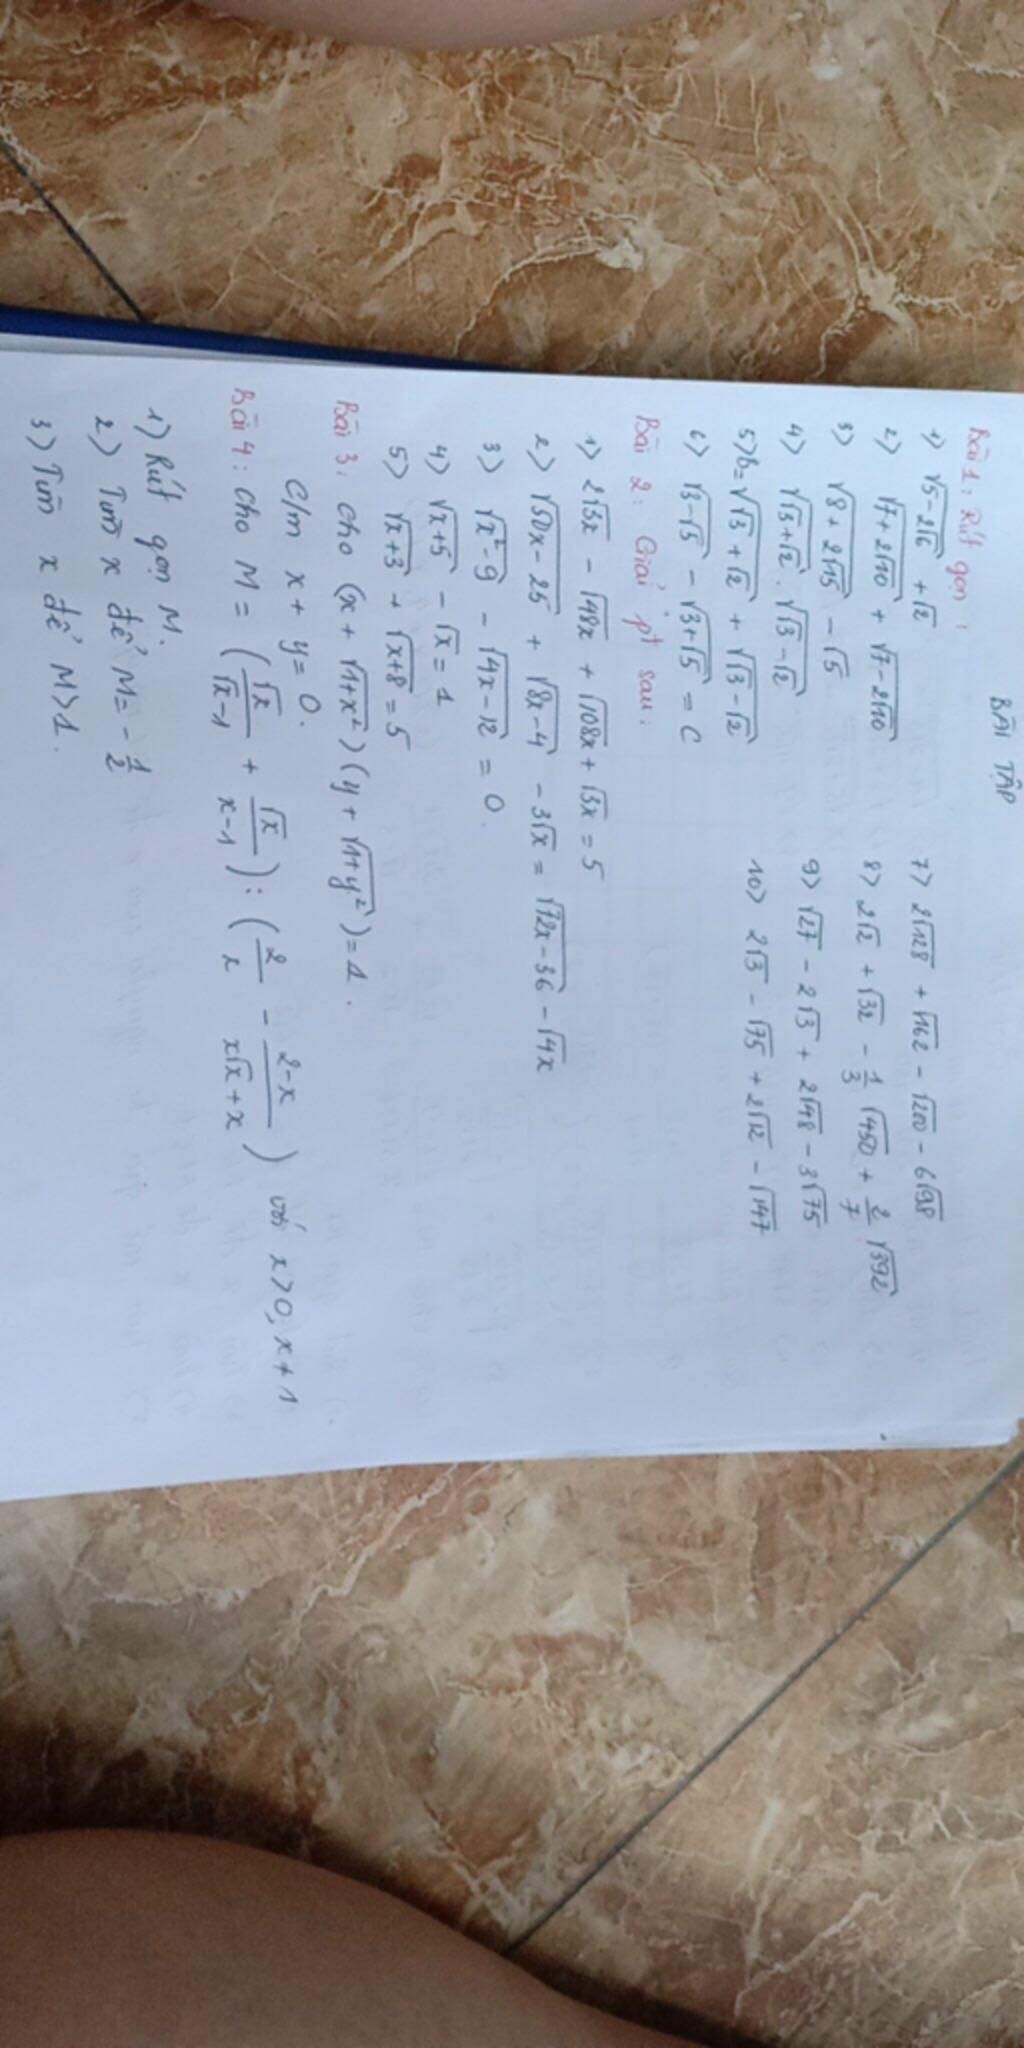 BÀI TẬP
Bài 1: Rút gọn:
1) √(5-2√6) + √2
2) √(7+2√10) + √(7-2√10)
3) √(8+2√15) - √5
4) √(√3+√2) . √(√3-√2)
5) b = √(√3+√2) + √(√3-√2)
6) √(3-√5) - √(3+√5) = C
7) 2√128 + √162 - √200 - 6√98
8) 2√2 + √32 - 1/3 √450 + 2/7 √392
9) √27 - 2√3 + 2√48 - 3√75
10) 2√3 - √75 + 2√12 - √147
Bài 2: Giải pt sau:
1) 2√3x - √48x + √108x + √3x = 5
2) √(50x-25) + √(8x-4) - 3√x = √(72x-36) - √4x
3) √(x²-9) - √(4x-12) = 0.
4) √(x+5) - √x = 1
5) √(x+3) + √(x+8) = 5
Bài 3: Cho (x + √(1+x²))(y + √(1+y²)) = 1.
C/m x + y = 0.
Bài 4: Cho M = (√x/(√x-1) + √x/(x-1)) : (2/x - (2-x)/(x√x+x)) với x>0, x≠1
1) Rút gọn M.
2) Tìm x để M = -1/2
3) Tìm x để M>1.